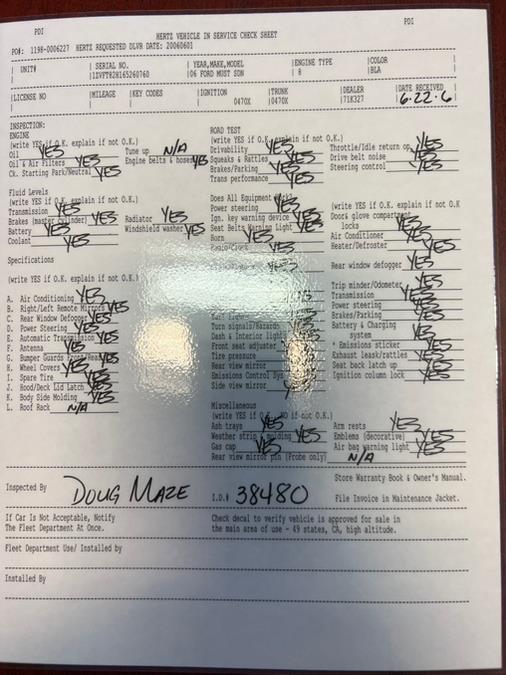 PDI PDI
HERTZ VEHICLE IN SERVICE CHECK SHEET
PO#: 1198-0006227 HERTZ REQUESTED DLVR DATE: 20060601
UNIT# | SERIAL NO. | YEAR,MAKE,MODEL | ENGINE TYPE | COLOR
| 1ZVFT82H165260760 | 06 FORD MUST SDN | 8 | BLA
LICENSE NO | MILEAGE | KEY CODES | IGNITION | TRUNK | DEALER | DATE RECEIVED
0470X | 0470X | 71K327 | 6-22-6
INSPECTION:
ENGINE
(write YES if O.K. explain if not O.K.)
Oil YES Tune up N/A
Oil & Air Filters YES Engine belts & hoses YES
Ck. Starting Park/Neutral YES
ROAD TEST
(write YES if O.K. explain if not O.K.)
Drivability YES Throttle/Idle return op YES
Squeaks & Rattles YES Drive belt noise YES
Brakes/Parking YES Steering control YES
Trans performance YES
Fluid Levels
(write YES if O.K. explain if not O.K.)
Transmission YES
Brakes (master cylinder) YES Radiator YES
Battery YES Windshield washer YES
Coolant YES
Specifications
(write YES if O.K. explain if not O.K.)
A. Air Conditioning YES
B. Right/Left Remote Mirrors YES
C. Rear Window Defogger YES
D. Power Steering YES
E. Automatic Transmission YES
F. Antenna YES
G. Bumper Guards Front/Rear YES
H. Wheel Covers YES
I. Spare Tire YES
J. Hood/Deck Lid Latch YES
K. Body Side Molding YES
L. Roof Rack N/A
Does All Equipment
Power steering YES (write YES if O.K. explain if not O.K
Ign. key warning device YES Door& glove compartment
Seat Belts Warning Light YES locks YES
Horn YES Air Conditioner YES
Radio/Clock YES Heater/Defroster YES
Rear window defogger YES
Trip minder/Odometer YES
Transmission YES
Power steering YES
Brakes/Parking YES
Turn signals/Hazards Battery & Charging
Dash & Interior lights system YES
Front seat adjuster * Emissions sticker YES
Tire pressure Exhaust leask/rattles YES
Rear view mirror Seat back latch up YES
Emissions Control Sys Ignition column lock YES
Side view mirror
Miscellaneous
(write YES if O.K. NO if not O.K.)
Ash trays YES Arm rests YES
Weather strip & molding YES Emblems (decorative) YES
Gas cap YES Air bag warning light YES
Rear view mirror pin (Probe only) N/A
Store Warranty Book & Owner's Manual.
Inspected By DOUG MAZE I.D.# 38480 File Invoice in Maintenance Jacket.
If Car Is Not Acceptable, Notify Check decal to verify vehicle is approved for sale in
The Fleet Department At Once. the main area of use - 49 states, CA, high altitude.
Fleet Department Use/ Installed by
Installed By